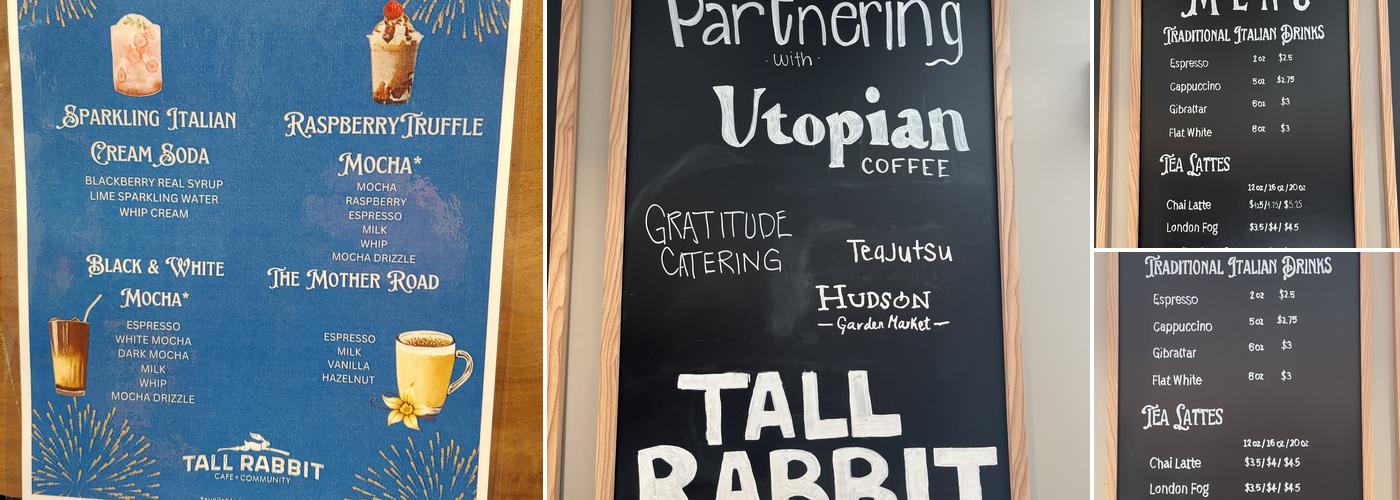 SPARKLING ITALIAN
CREAM SODA
BLACKBERRY REAL SYRUP
LIME SPARKLING WATER
WHIP CREAM
RASPBERRY TRUFFLE
MOCHA*
MOCHA
RASPBERRY
ESPRESSO
MILK
WHIP
MOCHA DRIZZLE
BLACK & WHITE
MOCHA*
ESPRESSO
WHITE MOCHA
DARK MOCHA
MILK
WHIP
MOCHA DRIZZLE
THE MOTHER ROAD
ESPRESSO
MILK
VANILLA
HAZELNUT
TALL RABBIT
CAFE+COMMUNITY
Partnering
·with·
Utopian
COFFEE
GRATITUDE
CATERING
TeaJutsu
HUDSON
—Garden Market—
TALL
RABBIT
MENU
TRADITIONAL ITALIAN DRINKS
Espresso 2oz $2.5
Cappuccino 5oz $2.75
Gibraltar 6oz $3
Flat White 8oz $3
TEA LATTES
12oz/16oz/20oz
Chai Latte
London Fog $3.5/$4/$4.5
TRADITIONAL ITALIAN DRINKS
Espresso 2oz $2.5
Cappuccino 5oz $2.75
Gibraltar 6oz $3
Flat White 8oz $3
TEA LATTES
12oz/16oz/20oz
Chai Latte $3.5/$4/$4.5
London Fog $3.5/$4/$4.5